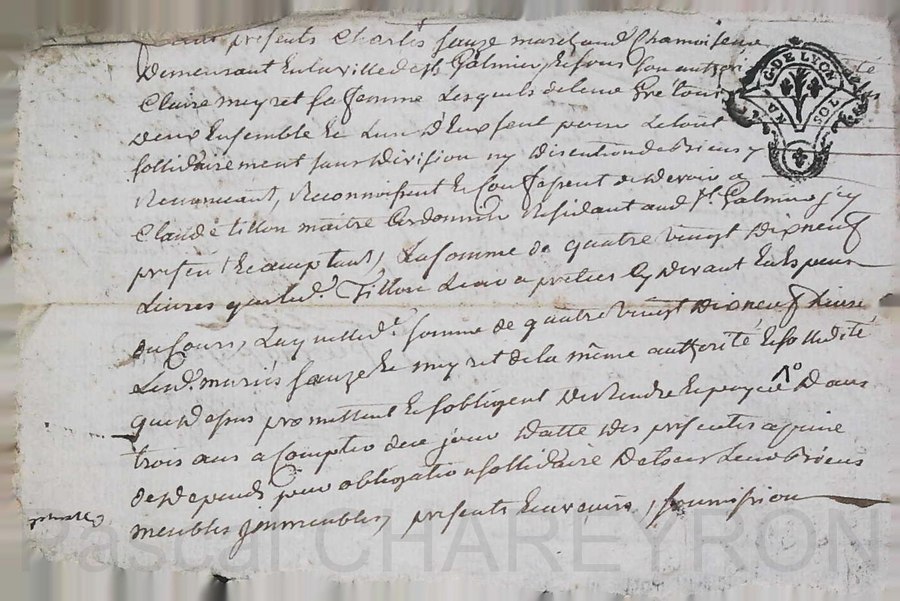 présents Charles sauze marchand Chamoiseur
Demeurant en la ville de st Galmier, et sous son autori
Claire meyret sa femme Lesquels de leur Gré tous
deux Ensemble Et L'un D'Eux seul pour Le tout
sollidairement sans Division ny Discution de Biens y
Renonceant, Reconnoissent Et Confessent de Devoir a
Claude tillon maitre Cordonnier Résidant aud. st Galmier icy
présent Et acceptant, La somme de quatre vingt Dixneuf
Livres que led. Tillon Leur a prêtée Cy Devant En Espece
du Cours, Laquelle de. somme de quatre vingt Dixneuf Livre
Lesd. mariés sauze Et meyret de la même authorité Et sollidité
que Dessus promettent Et sobligent De Rendre Et payer Dans
trois ans a Compter de ce jour Datte Des présentes a peine
de Dépends, pour obligation sollidaire De tous Leurs Biens
meubles immeubles, présents Et avenirs, soumission
G. DE LYON
UN SOL
Pascal CHAREYRON